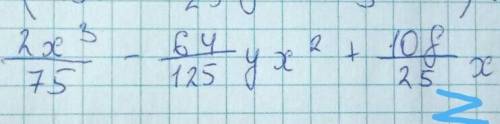 2x³/75 - 64/125 yx² + 108/25 x